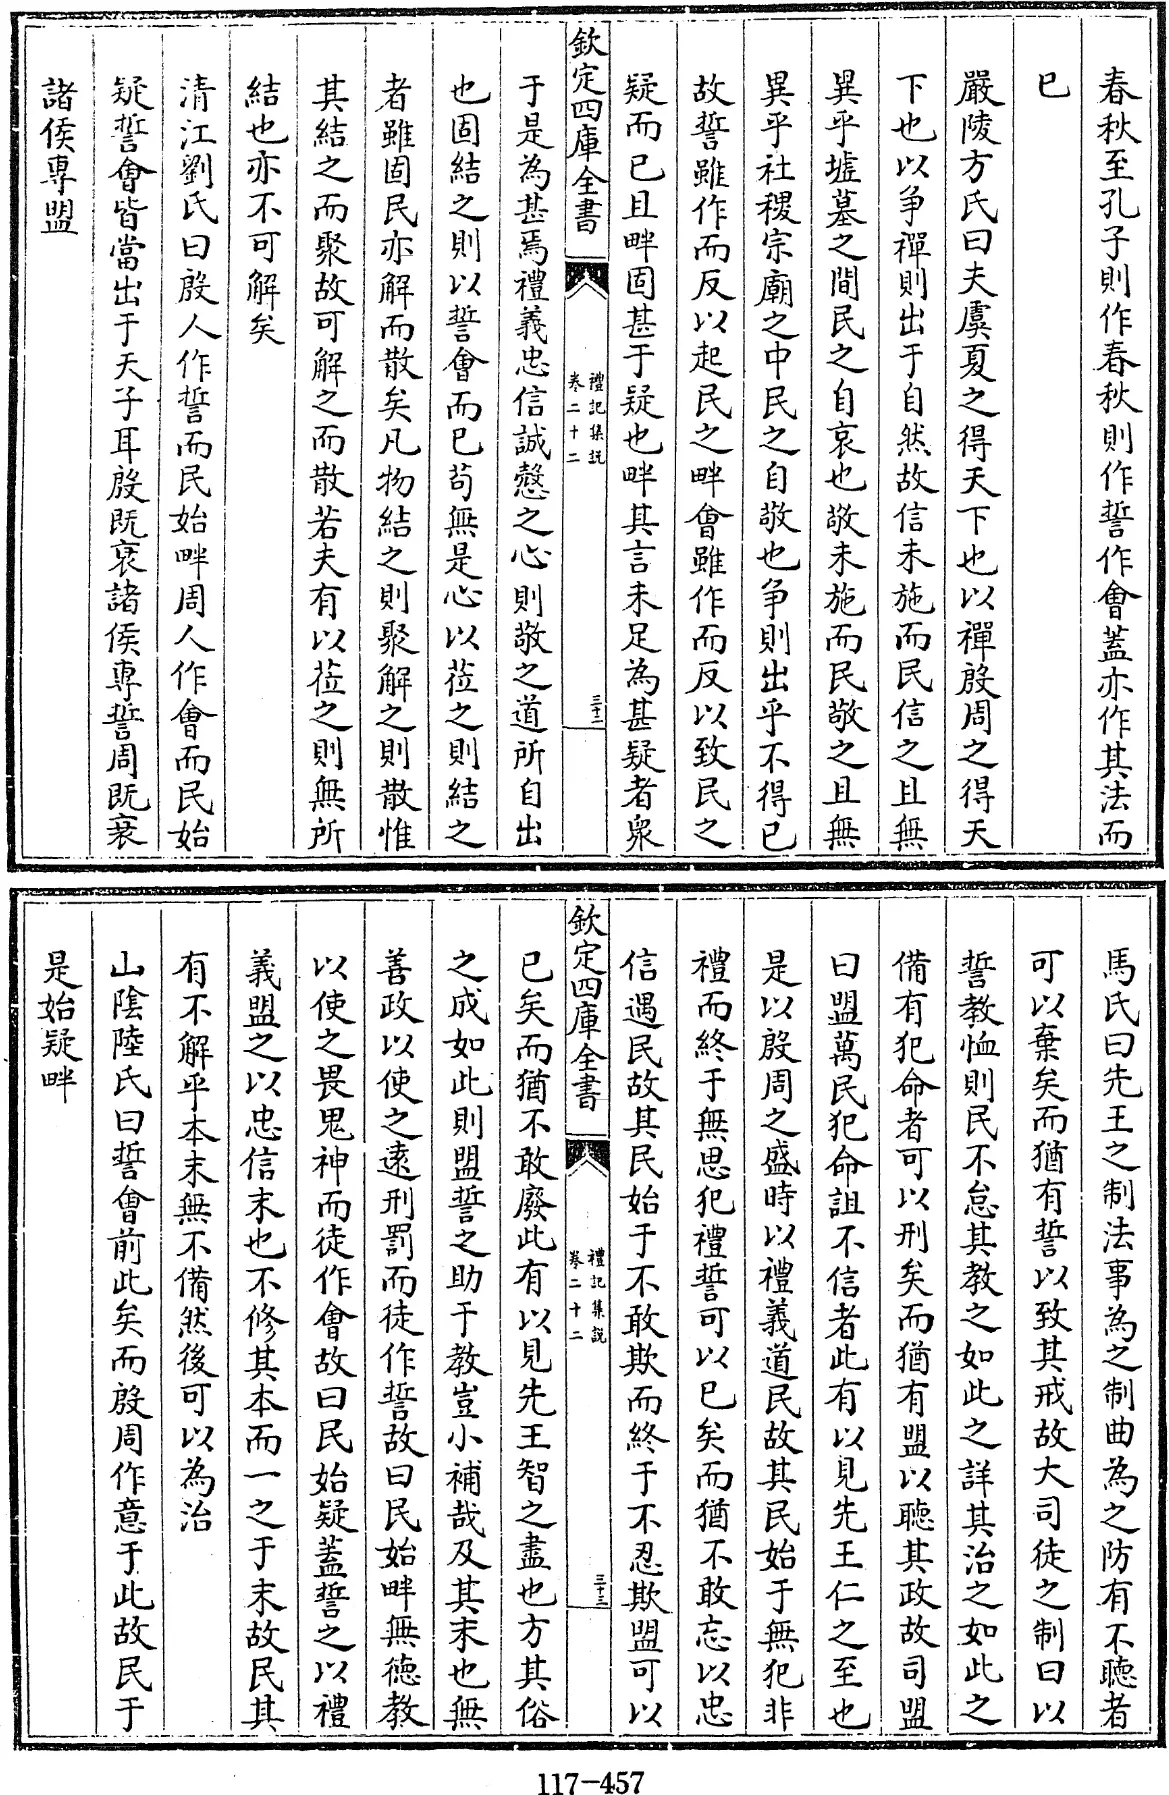 春秋至孔子則作春秋則作誓作會蓋亦作其法而
已
嚴陵方氏曰夫虞夏之得天下也以禪殷周之得天
下也以争禪則出于自然故信未施而民信之且無
異乎墟墓之間民之自哀也敬未施而民敬之且無
異乎社稷宗廟之中民之自敬也争則出乎不得已
故誓雖作而反以起民之畔會雖作而反以致民之
疑而已且畔固甚于疑也畔其言未足為甚疑者衆
欽定四庫全書
禮記集説
卷二十二
三十二
于是為甚焉禮義忠信誠慤之心則敬之道所自出
也固結之則以誓會而已苟無是心以蒞之則結之
者雖固民亦解而散矣凡物結之則聚解之則散惟
其結之而聚故可解之而散若夫有以蒞之則無所
結也亦不可解矣
清江劉氏曰殷人作誓而民始畔周人作會而民始
疑誓會皆當出于天子耳殷既衰諸侯專誓周既衰
諸侯專盟
馬氏曰先王之制法事為之制曲為之防有不聽者
可以棄矣而猶有誓以致其戒故大司徒之制曰以
誓教恤則民不怠其教之如此之詳其治之如此之
備有犯命者可以刑矣而猶有盟以聽其政故司盟
曰盟萬民犯命詛不信者此有以見先王仁之至也
是以殷周之盛時以禮義道民故其民始于無犯非
禮而終于無思犯禮誓可以已矣而猶不敢忘以忠
信遇民故其民始于不敢欺而終于不忍欺盟可以
欽定四庫全書
禮記集説
卷二十二
三十三
已矣而猶不敢廢此有以見先王智之盡也方其俗
之成如此則盟誓之助于教豈小補哉及其末也無
善政以使之逺刑罰而徒作誓故曰民始畔無德教
以使之畏鬼神而徒作會故曰民始疑蓋誓之以禮
義盟之以忠信末也不修其本而一之于末故民其
有不解乎本末無不備然後可以為治
山陰陸氏曰誓會前此矣而殷周作意于此故民于
是始疑畔
117-457